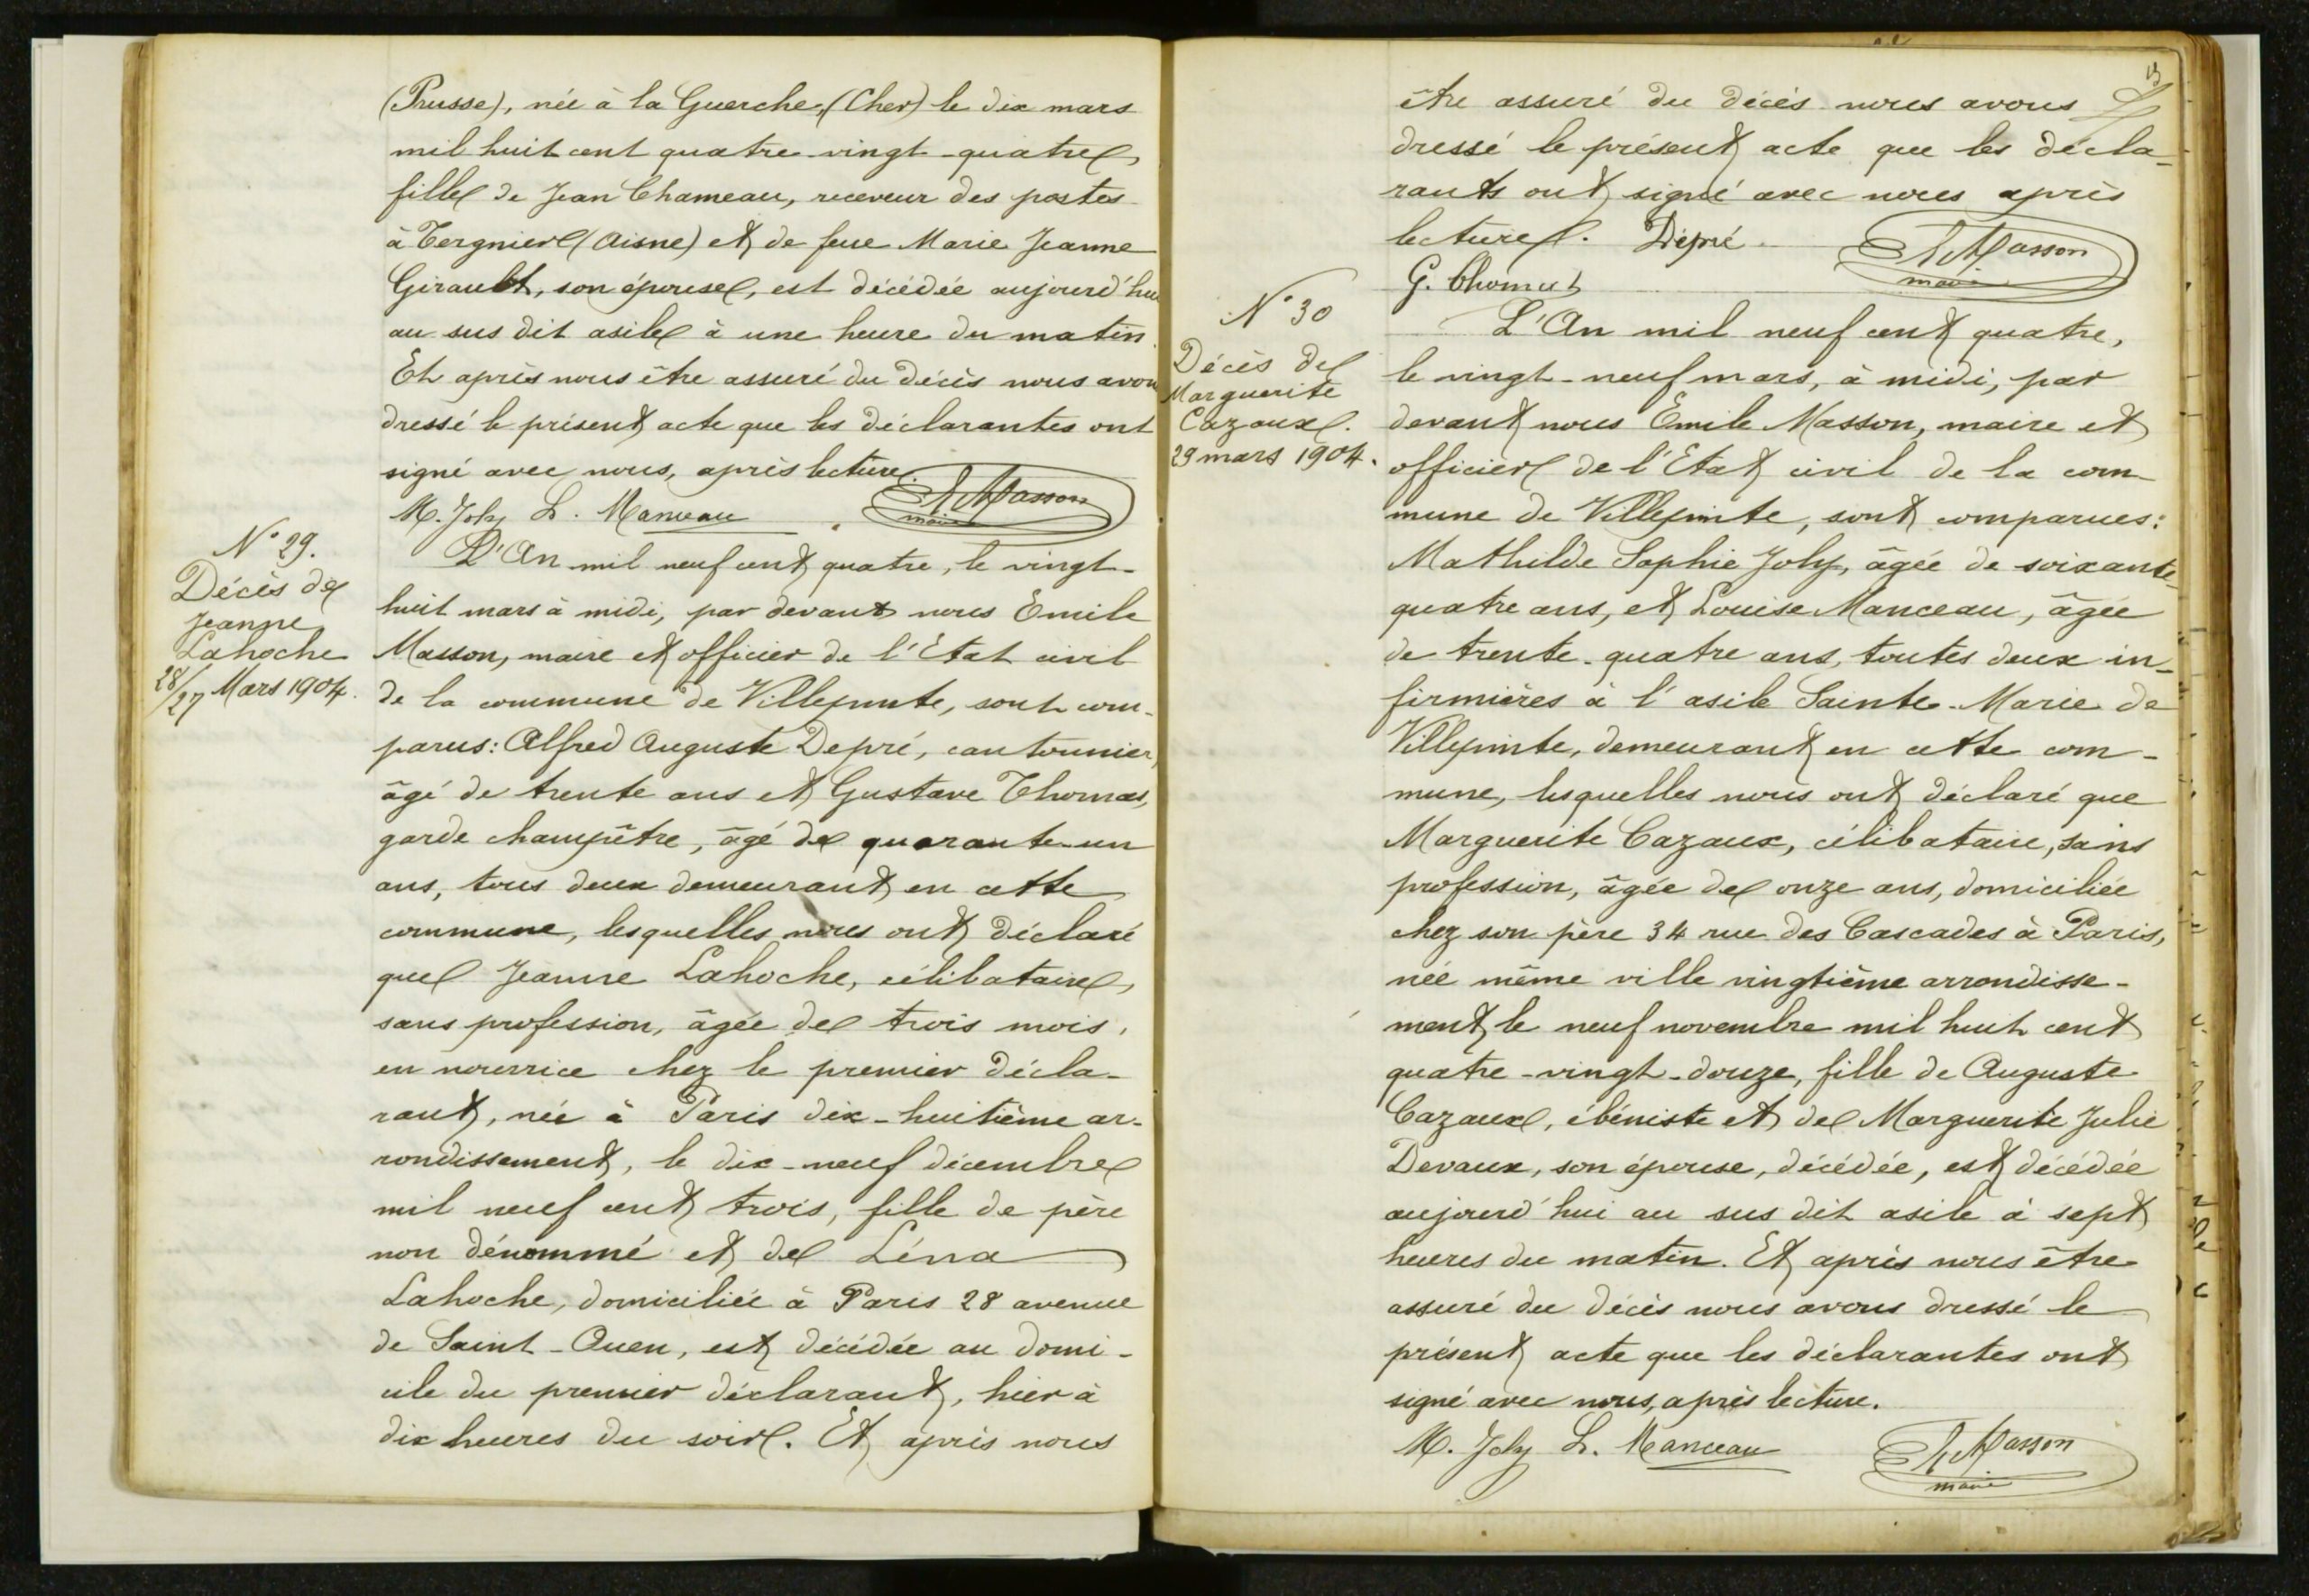 (Prusse), née à la Guerche, (Cher) le dix mars
mil huit cent quatre-vingt-quatre,
fille de Jean Chameau, receveur des postes
à Tergnier (Aisne) et de feue Marie Jeanne
Girault, son épouse, est décédée aujourd'hui
au sus dit asile à une heure du matin.
Et après nous être assuré du décès nous avons
dressé le présent acte que les déclarantes ont
signé avec nous, après lecture.
M. Joly L. Manceau EMasson
maire
N° 29.
Décès de
Jeanne
Lahoche
28/27 Mars 1904.
L'An mil neuf cent quatre, le vingt-
huit mars à midi, par devant nous Emile
Masson, maire et officier de l'Etat civil
de la commune de Villepinte, sont com-
parus: Alfred Auguste Depré, cantonnier,
âgé de trente ans et Gustave Thomas,
garde champêtre, âgé de quarante-un
ans, tous deux demeurant en cette
commune, lesquelles nous ont déclaré
que Jeanne Lahoche, célibataire,
sans profession, âgée de trois mois,
en nourrice chez le premier décla-
rant, née à Paris dix-huitième ar-
rondissement, le dix-neuf décembre
mil neuf cent trois, fille de père
non dénommé et de Léna
Lahoche, domiciliée à Paris 28 avenue
de Saint-Ouen, est décédée au domi-
cile du premier déclarant, hier à
dix heures du soir. Et après nous
être assuré du décès nous avons
dressé le présent acte que les décla-
rants ont signé avec nous après
lecture. Dépré EMasson
G. Thomas maire
N° 30
Décès de
Marguerite
Cazaux.
29 mars 1904.
L'An mil neuf cent quatre,
le vingt-neuf mars, à midi, par
devant nous Emile Masson, maire et
officier de l'Etat civil de la com-
mune de Villepinte, sont comparues:
Mathilde Sophie Joly, âgée de soixante-
quatre ans, et Louise Manceau, âgée
de trente-quatre ans, toutes deux in-
firmières à l'asile Sainte-Marie de
Villepinte, demeurant en cette com-
mune, lesquelles nous ont déclaré que
Marguerite Cazaux, célibataire, sans
profession, âgée de onze ans, domiciliée
chez son père 34 rue des Cascades à Paris,
née même ville vingtième arrondisse-
ment, le neuf novembre mil huit cent
quatre-vingt-douze, fille de Auguste
Cazaux, ébéniste et de Marguerite Julie
Devaux, son épouse, décédée, est décédée
aujourd'hui au sus dit asile à sept
heures du matin. Et après nous être
assuré du décès nous avons dressé le
présent acte que les déclarantes ont
signé avec nous, après lecture.
M. Joly L. Manceau EMasson
maire